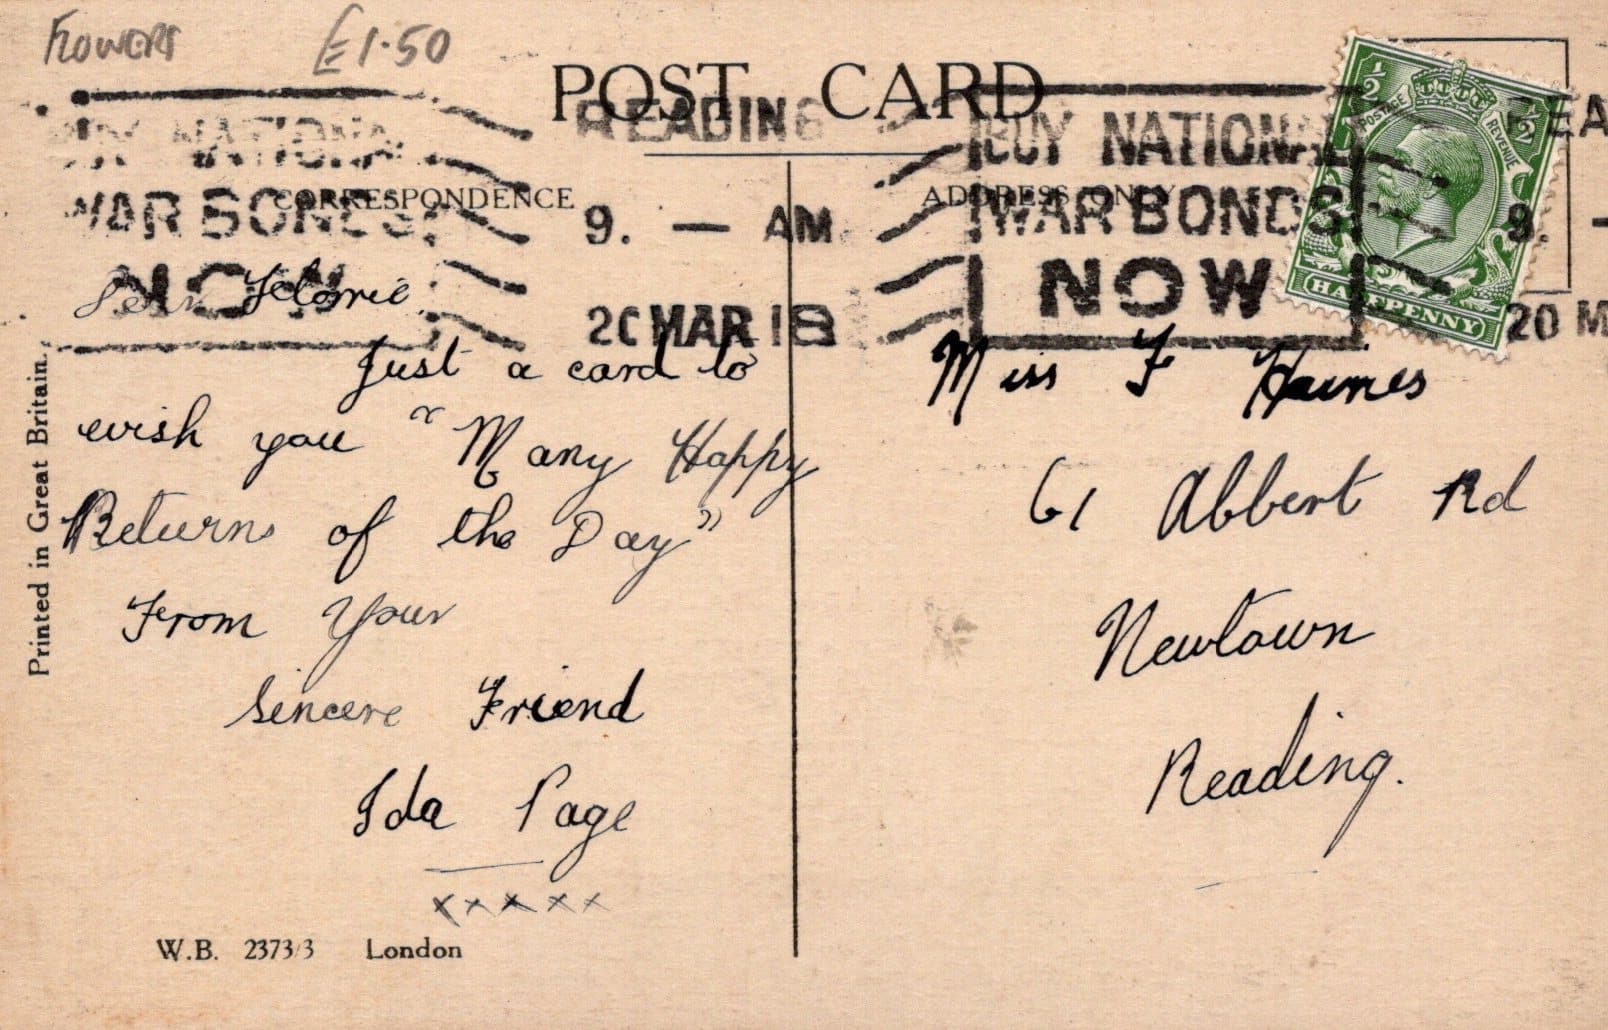 FLOWERS £1.50
POST CARD
READING
BUY NATIONAL
WAR BONDS
NOW
9. — AM
20 MAR 18
BUY NATIONAL
WAR BONDS
NOW
REA
9. —
20 M
1/2 1/2
POSTAGE REVENUE
HALFPENNY
CORRESPONDENCE
ADDRESS ONLY
Dear
Just a card to
wish you "Many Happy
Returns of the Day"
From Your
Sincere Friend
Ida Page
x x x x x
Miss F Haines
61 Abbert Rd
Newtown
Reading.
Printed in Great Britain.
W.B. 2373/3 London